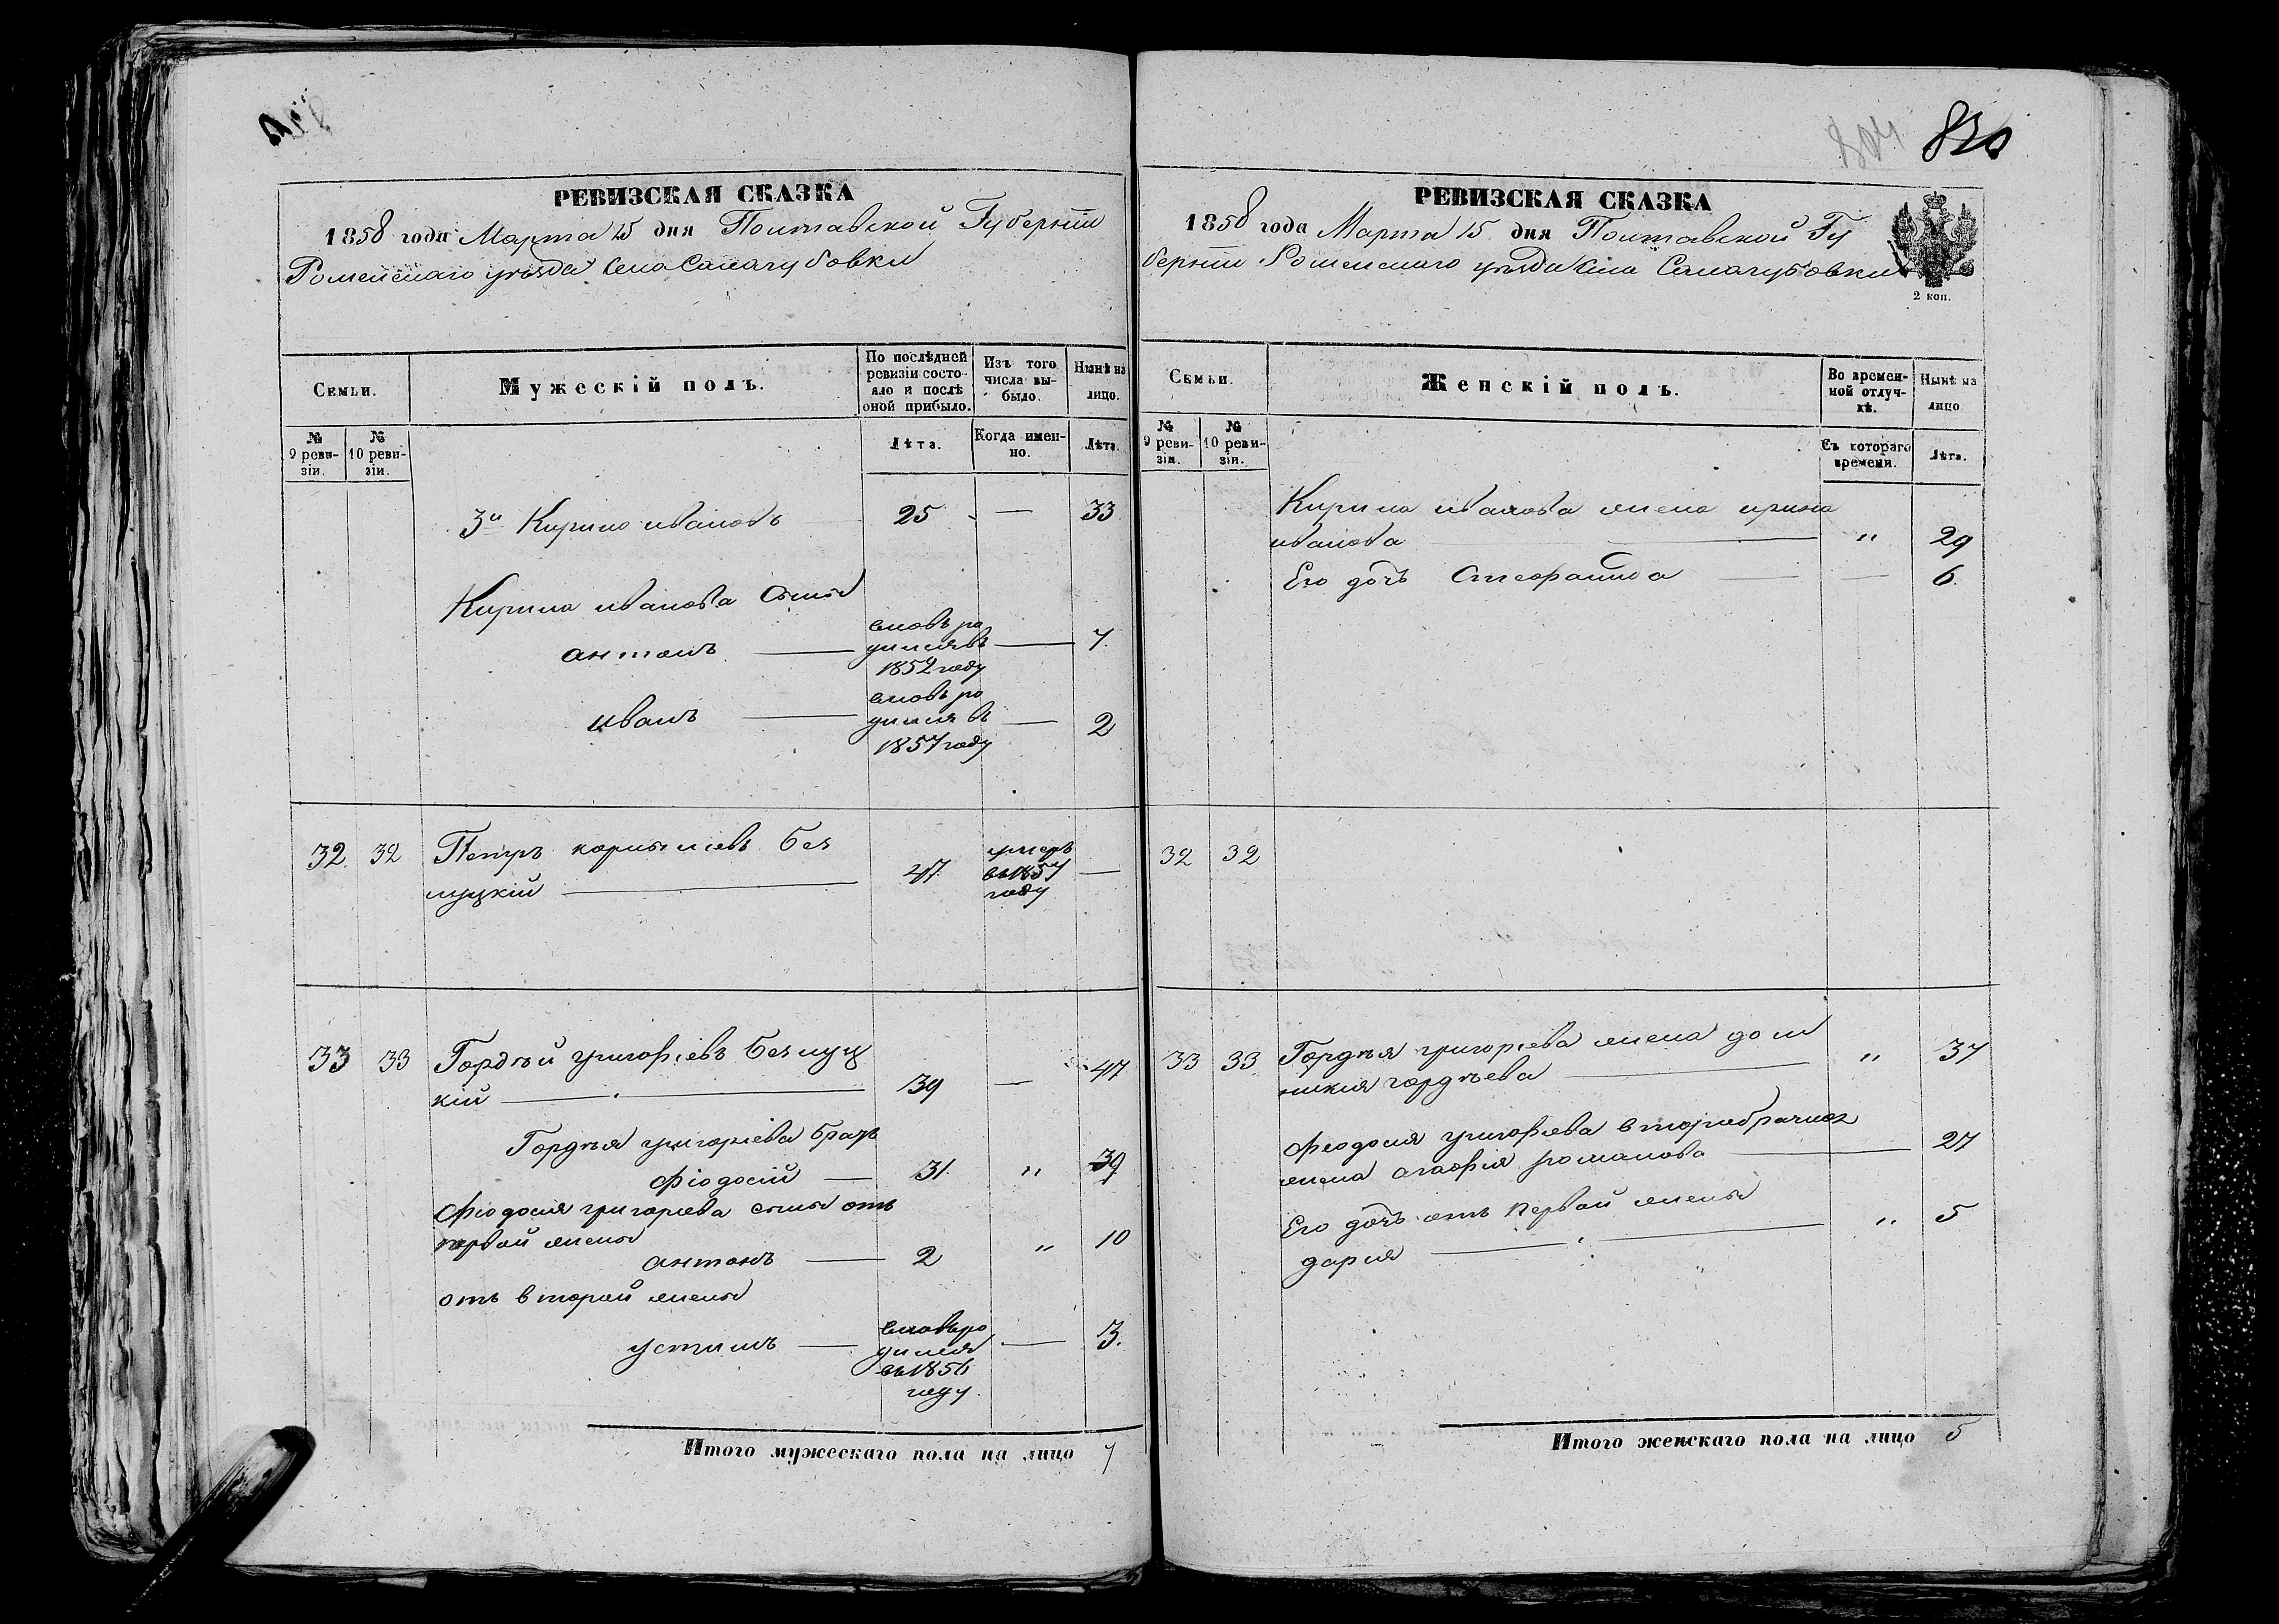 РЕВИЗСКАЯ СКАЗКА
1858 года Марта 15 дня Полтавской Губерніи
Роменскаго уѣзда Села Салагубовки
Семьи.
Мужескій полъ.
По послѣдней ревизіи состояло и послѣ оной прибыло.
Изъ того числа выбыло.
Нынѣ на лицо.
№ 9 ревизіи.
№ 10 ревизіи.
Лѣта.
Когда именно.
Лѣта.
3й Кирило ивановъ 25 — 33
Кирила иванова сыны
антонъ — вновь родился въ 1852 году — 7
иванъ — вновь родился въ 1857 году — 2
32 32 Петръ корнѣіевъ Без
луцкій — 47 умеръ въ 1857 году —
33 33 Гордѣй григорьевъ Безлуц
кій — 39 — 47
Гордѣя григорьева братъ
Фіодосій — 31 " 39
Фіодосія григорьева сыны отъ
первой жены
антонъ — 2 " 10
отъ второй жены
устимъ — вновь родился въ 1856 году — 3.
Итого мужескаго пола на лицо 7
830
804
РЕВИЗСКАЯ СКАЗКА
1858 года Марта 15 дня Полтавской Гу
берніи Роменскаго уѣзда Села Салагубовки
2 коп.
Семьи.
Женскій полъ.
Во временной отлучкѣ.
Нынѣ на лицо
№ 9 ревизіи.
№ 10 ревизіи.
Съ котораго времени.
Лѣта.
Кирила иванова жена ирина
иванова — " 29
Его дочь Стефанида — — 6.
32 32
33 33 Гордѣя григорьева жена дом
никия гордѣева — " 37
Феодосия григорьева второбрачная
жена агафия романова — 27
Его дочь отъ первой жены
дария — " 5
Итого женскаго пола на лицо 5